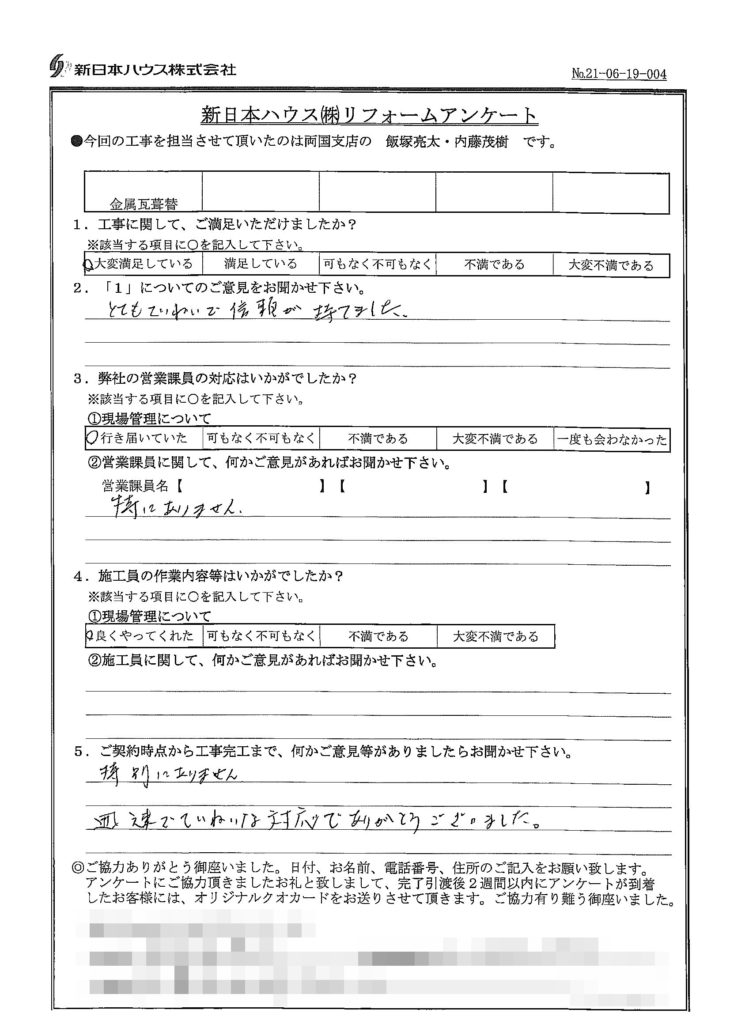 新日本ハウス株式会社
№21-06-19-004
新日本ハウス㈱リフォームアンケート
●今回の工事を担当させて頂いたのは両国支店の 飯塚亮太・内藤茂樹 です。
金属瓦葺替
1．工事に関して、ご満足いただけましたか？
※該当する項目に○を記入して下さい。
○大変満足している 満足している 可もなく不可もなく 不満である 大変不満である
2．「1」についてのご意見をお聞かせ下さい。
とてもていねいで信頼が持てました。
3．弊社の営業課員の対応はいかがでしたか？
※該当する項目に○を記入して下さい。
①現場管理について
○行き届いていた 可もなく不可もなく 不満である 大変不満である 一度も会わなかった
②営業課員に関して、何かご意見があればお聞かせ下さい。
営業課員名【 】【 】【 】
特にありません.
4．施工員の作業内容等はいかがでしたか？
※該当する項目に○を記入して下さい。
①現場管理について
○良くやってくれた 可もなく不可もなく 不満である 大変不満である
②施工員に関して、何かご意見があればお聞かせ下さい。
5．ご契約時点から工事完工まで、何かご意見等がありましたらお聞かせ下さい。
特別にありません
迅速でていねいな対応でありがとうございました。
◎ご協力ありがとう御座いました。日付、お名前、電話番号、住所のご記入をお願い致します。
アンケートにご協力頂きましたお礼と致しまして、完了引渡後２週間以内にアンケートが到着
したお客様には、オリジナルクオカードをお送りさせて頂きます。ご協力有り難う御座いました。